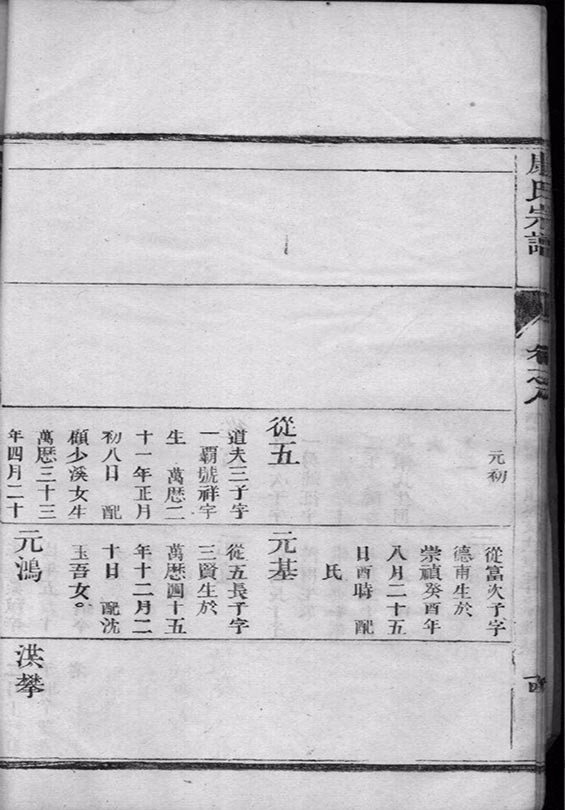 氏宗譜
卷之八
元初
從五
道夫三子字
一霸號祥宇
生　萬厯二
十一年正月
初八日　配
顧少溪女生
萬厯三十三
年四月二十
從富次子字
德甫生於
崇禎癸酉年
八月二十五
日酉時　配
氏
元基
從五長子字
三賢生於
萬厯四十五
年十二月二
十日　配沈
玉吾女。
元鴻
洪攀